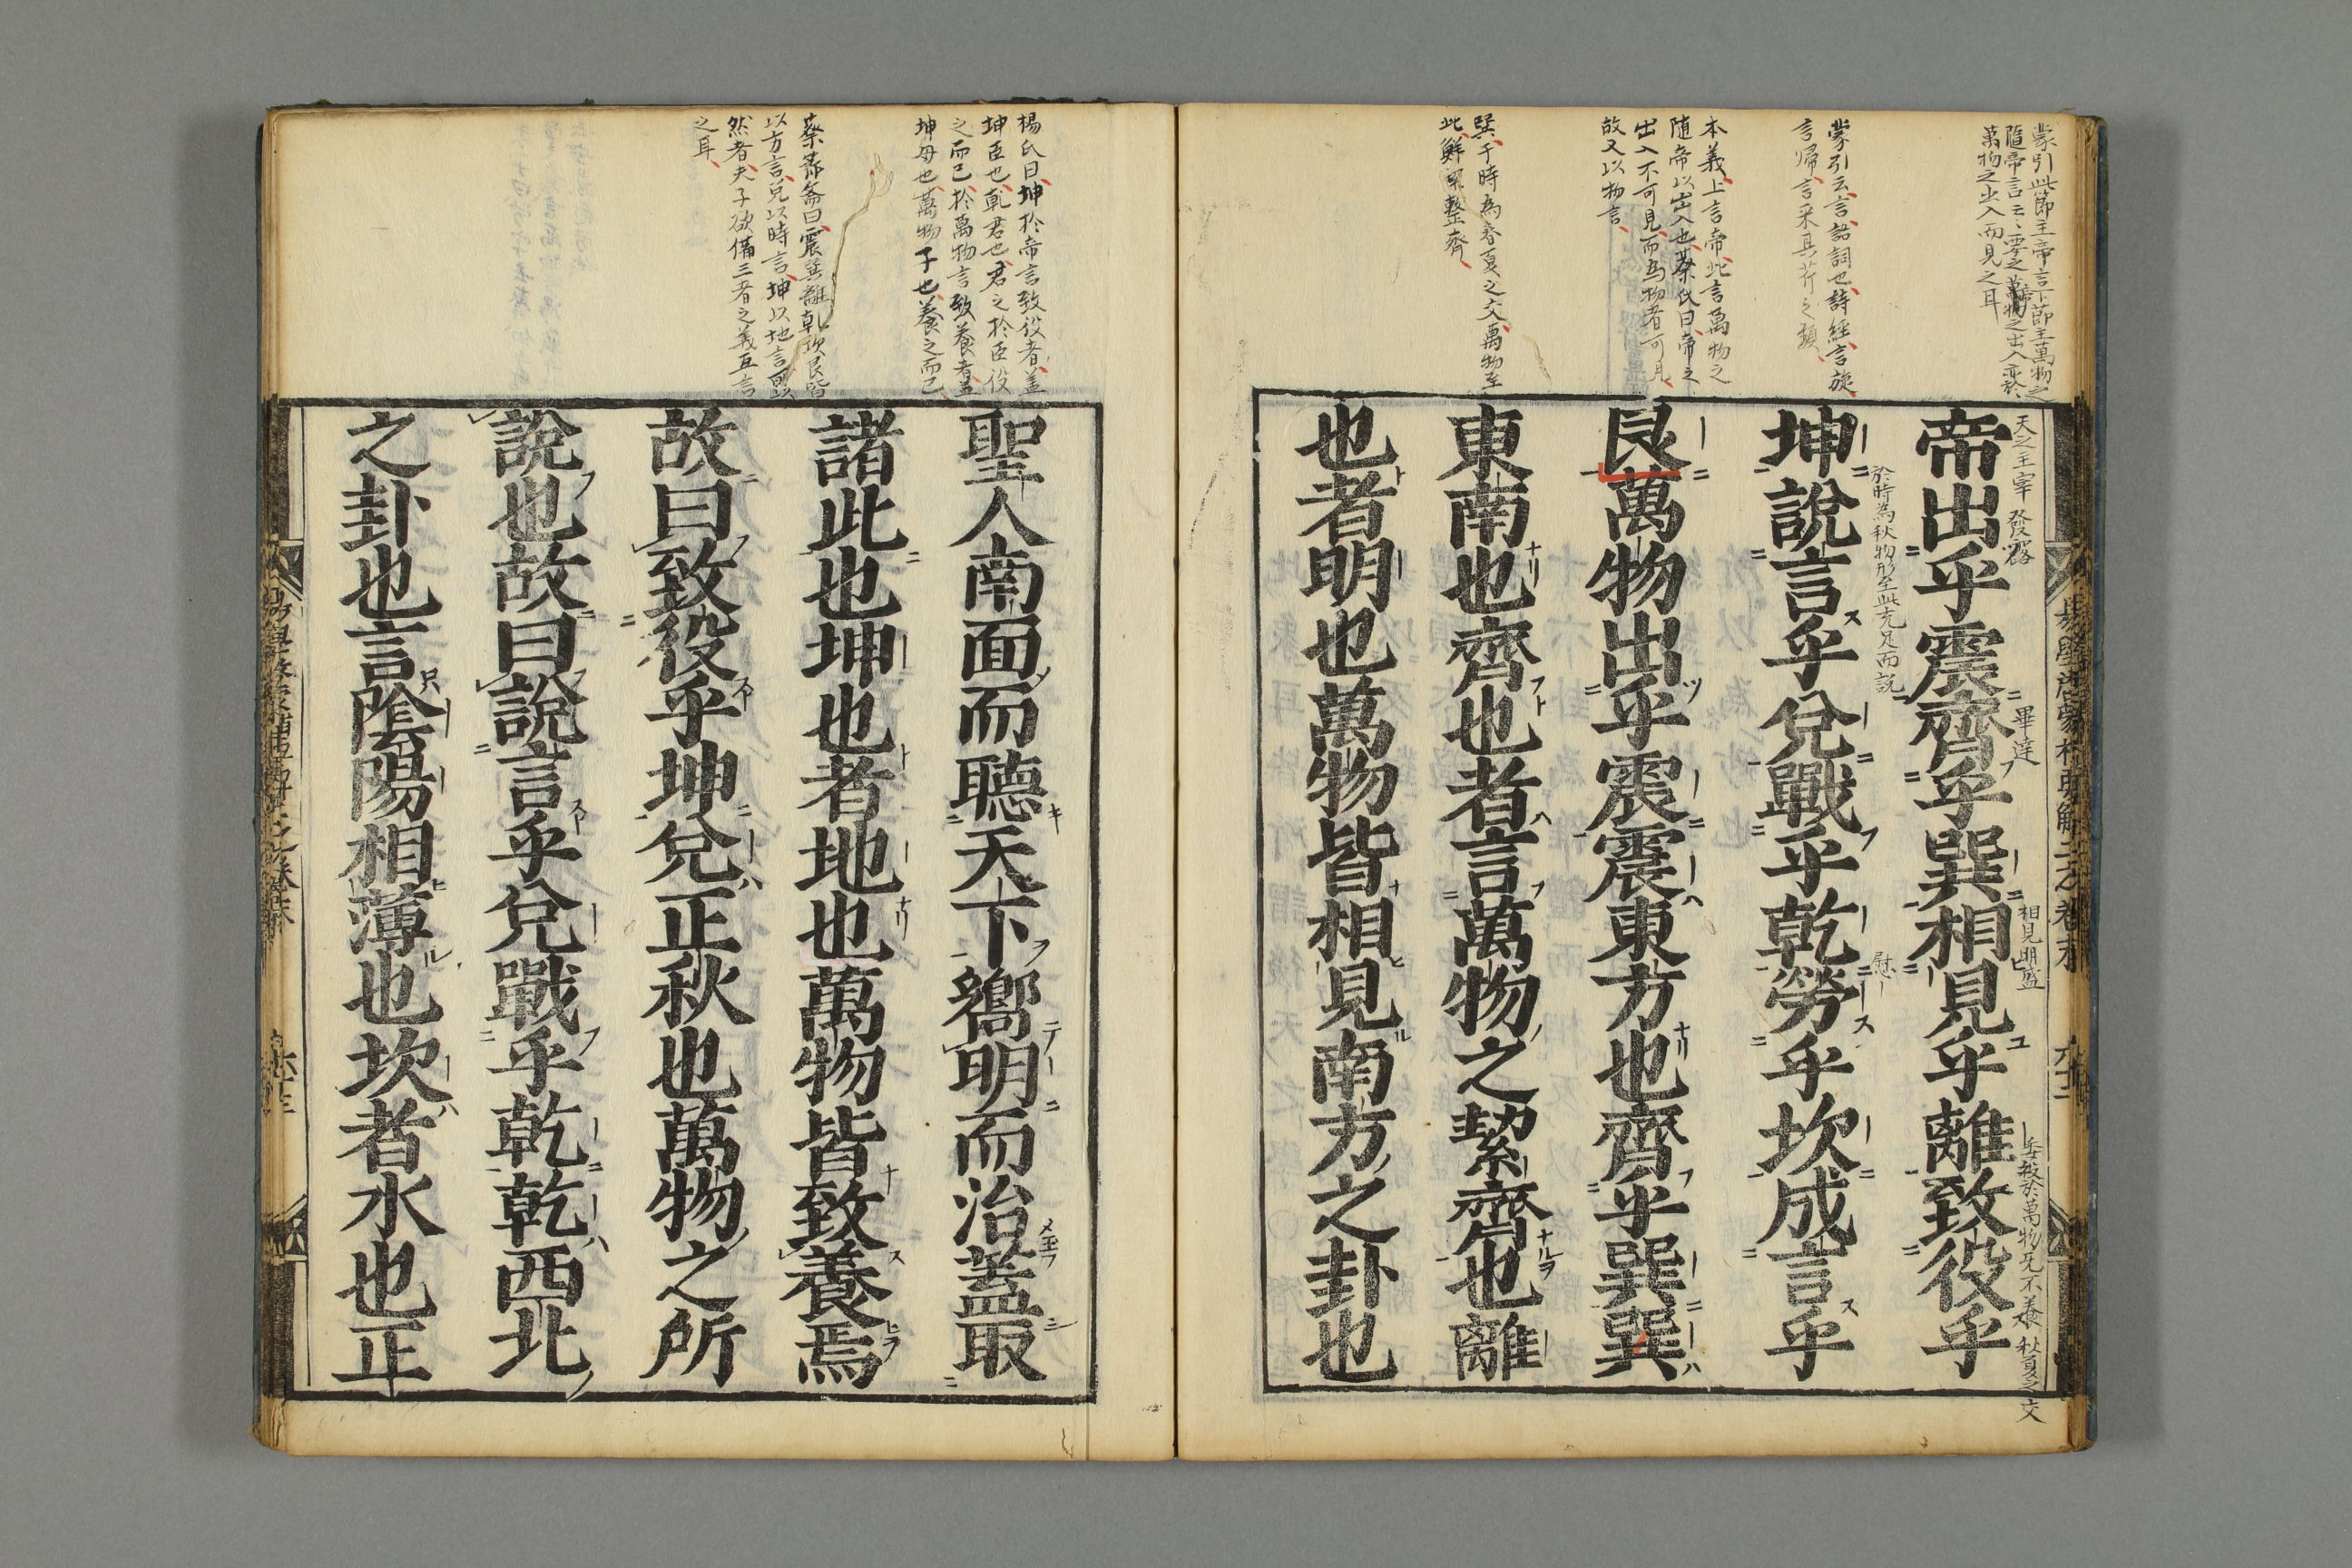 蒙引此節主帝言下節主萬物之
隨帝言云云要之萬物之出入亦於
萬物之出入而見之耳
蒙引云言語詞也詩經言旋
言歸言采其芹之類
本義上言帝此言萬物之
隨帝以出入也蔡氏曰帝之
出入不可見而為物者可見
故又以物言
巽于時為春夏之交萬物至
此鮮整齊
天之主宰 發露 畢達 相見明盛
秋夏之交
帝出乎震齊乎巽相見乎離致役乎
於時為秋物形至此充足而説 慰
坤說言乎兌戰乎乾勞乎坎成言乎
艮萬物出乎震震東方也齊乎巽巽
東南也齊也者言萬物之絜齊也離
也者明也萬物皆相見南方之卦也
楊氏曰坤於帝言致役者蓋
坤臣也乾君也君之於臣役
之而已於萬物言致養者蓋
坤母也萬物子也養之而已
蔡節斎曰震巽離乾坎艮皆
以方言兌以時言坤以地言所以
然者夫子欲備三者之義互言
之耳
聖人南面而聽天下嚮明而治蓋取
諸此也坤也者地也萬物皆致養焉
故曰致役乎坤兌正秋也萬物之所
說也故曰說言乎兌戰乎乾乾西北
之卦也言陰陽相薄也坎者水也正